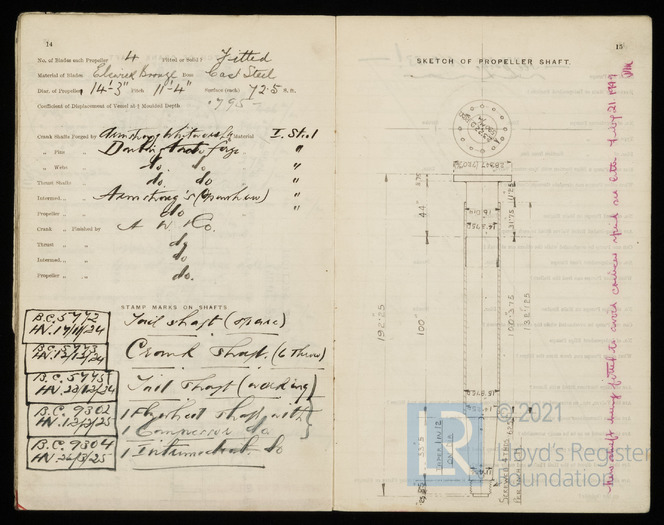 14
No. of Blades each Propeller 4 Fitted or Solid? Fitted
Material of Blades Bronze Boss Cast Steel
Diar. of Propeller 14'-3" Pitch 11'-4" Surface (each) 72.5 S. ft.
Coefficient of Displacement of Vessel at ⅘ Moulded Depth .795
Crank Shafts Forged by Armstrong Whitworth Material I. Steel
" Pins " Forge "
" Webs " do. do "
Thrust Shafts " do. do "
Intermed. " " Armstrong's (Openshaw) "
Propeller " " do "
Crank " Finished by A W Co.
Thrust " " do
Intermed. " " do.
Propeller " " do.
STAMP MARKS ON SHAFTS
B.C. 5772
HN. 17/11/24
Tail shaft (spare)
B.C. 5773
HN. 13/12/24
Crank shaft (6 Throw)
B.C. 5775
HN. 22/12/24
Tail shaft (working)
B.C. 9302
HN. 12/2/25
1 Flywheel shaft with
1 Compressor do
B.C. 9304
HN. 26/2/25
1 Intermediate do
15
SKETCH OF PROPELLER SHAFT.
44"
100"
192.25
31.75
100.375
138.125
33.5
© 2021
LR
Lloyd's Register
Foundation
New shaft being fitted to see letter July 21 1949